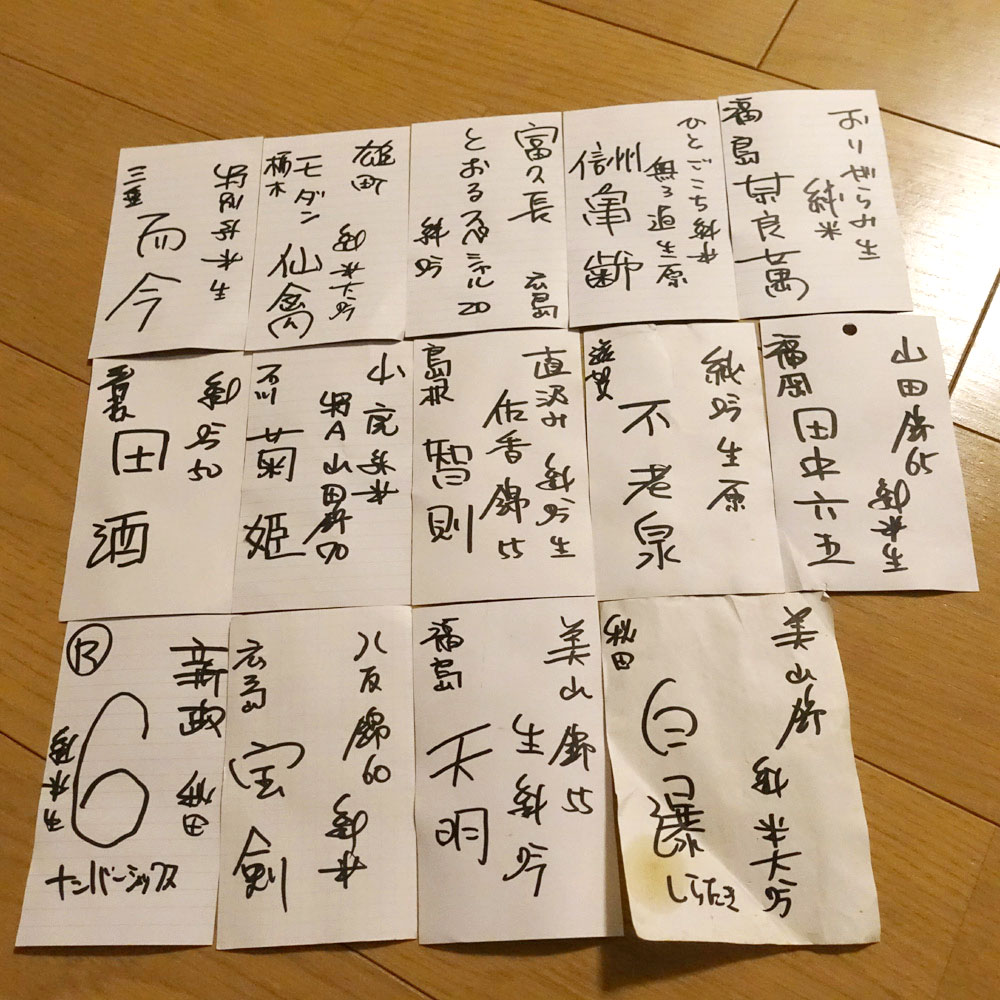 特別純米生
三重
而今
雄町
純米大吟
モダン
栃木
仙禽
富久長
広島
とおるスペシャル20
純吟
ひとごこち純米
無ろ過生原
信州
亀齢
おりがらみ生
純米
福島
奈良萬
純吟50
青森
田酒
山廃純米
特A山田錦70
石川
菊姫
直汲み純吟生
佐香錦55
島根
智則
純吟生原
滋賀
不老泉
山田錦65
純米生
福岡
田中六五
R
新政
秋田
6
ナンバーシックス
八反錦60
純米
広島
宝剣
美山錦55
生純吟
福島
天明
美山錦
純米大吟
秋田
白瀑
しらたき